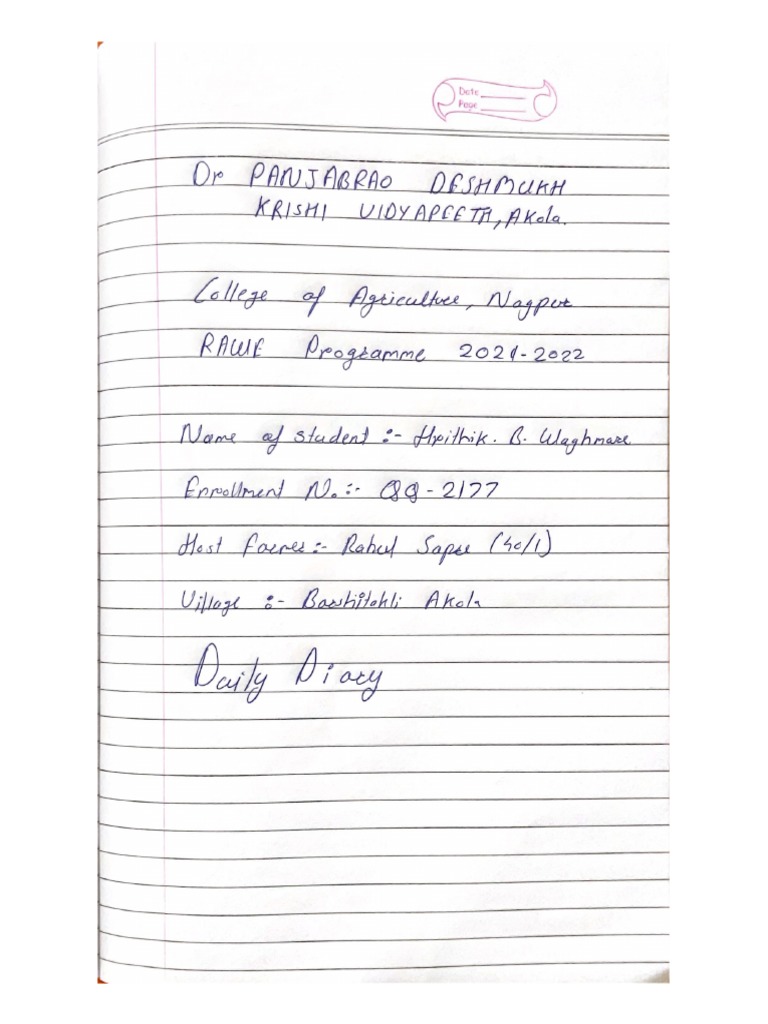 Date
Page
Dr PANJABRAO DESHMUKH
KRISHI VIDYAPEETH, Akola.
College of Agriculture, Nagpur
RAWE Programme 2021-2022
Name of student :- Hrithik. B. Waghmare
Enrollment No. :- QQ-2177
Host Farmer :- Rahul Sapre (40/1)
Village :- Barshitakli Akola
Daily Diary